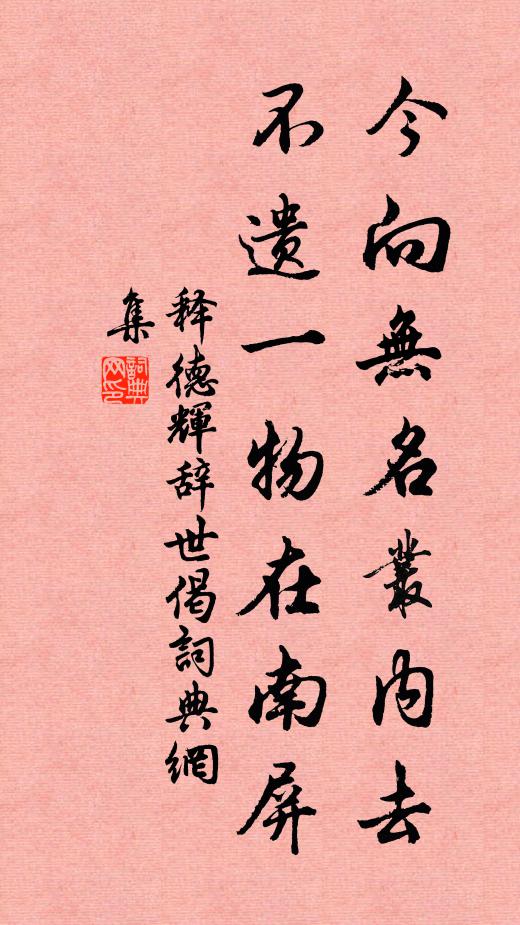 今向無名叢内去
不遺一物在南屏
释德輝辞世偈詞典網
集
詞典
网印